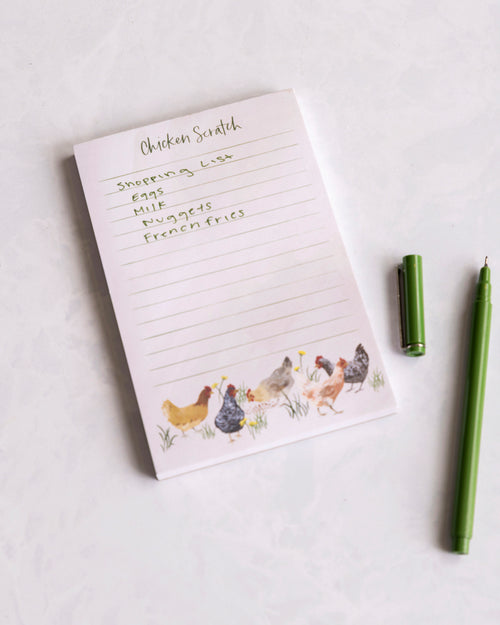 Chicken Scratch
Shopping List
Eggs
Milk
Nuggets
French fries